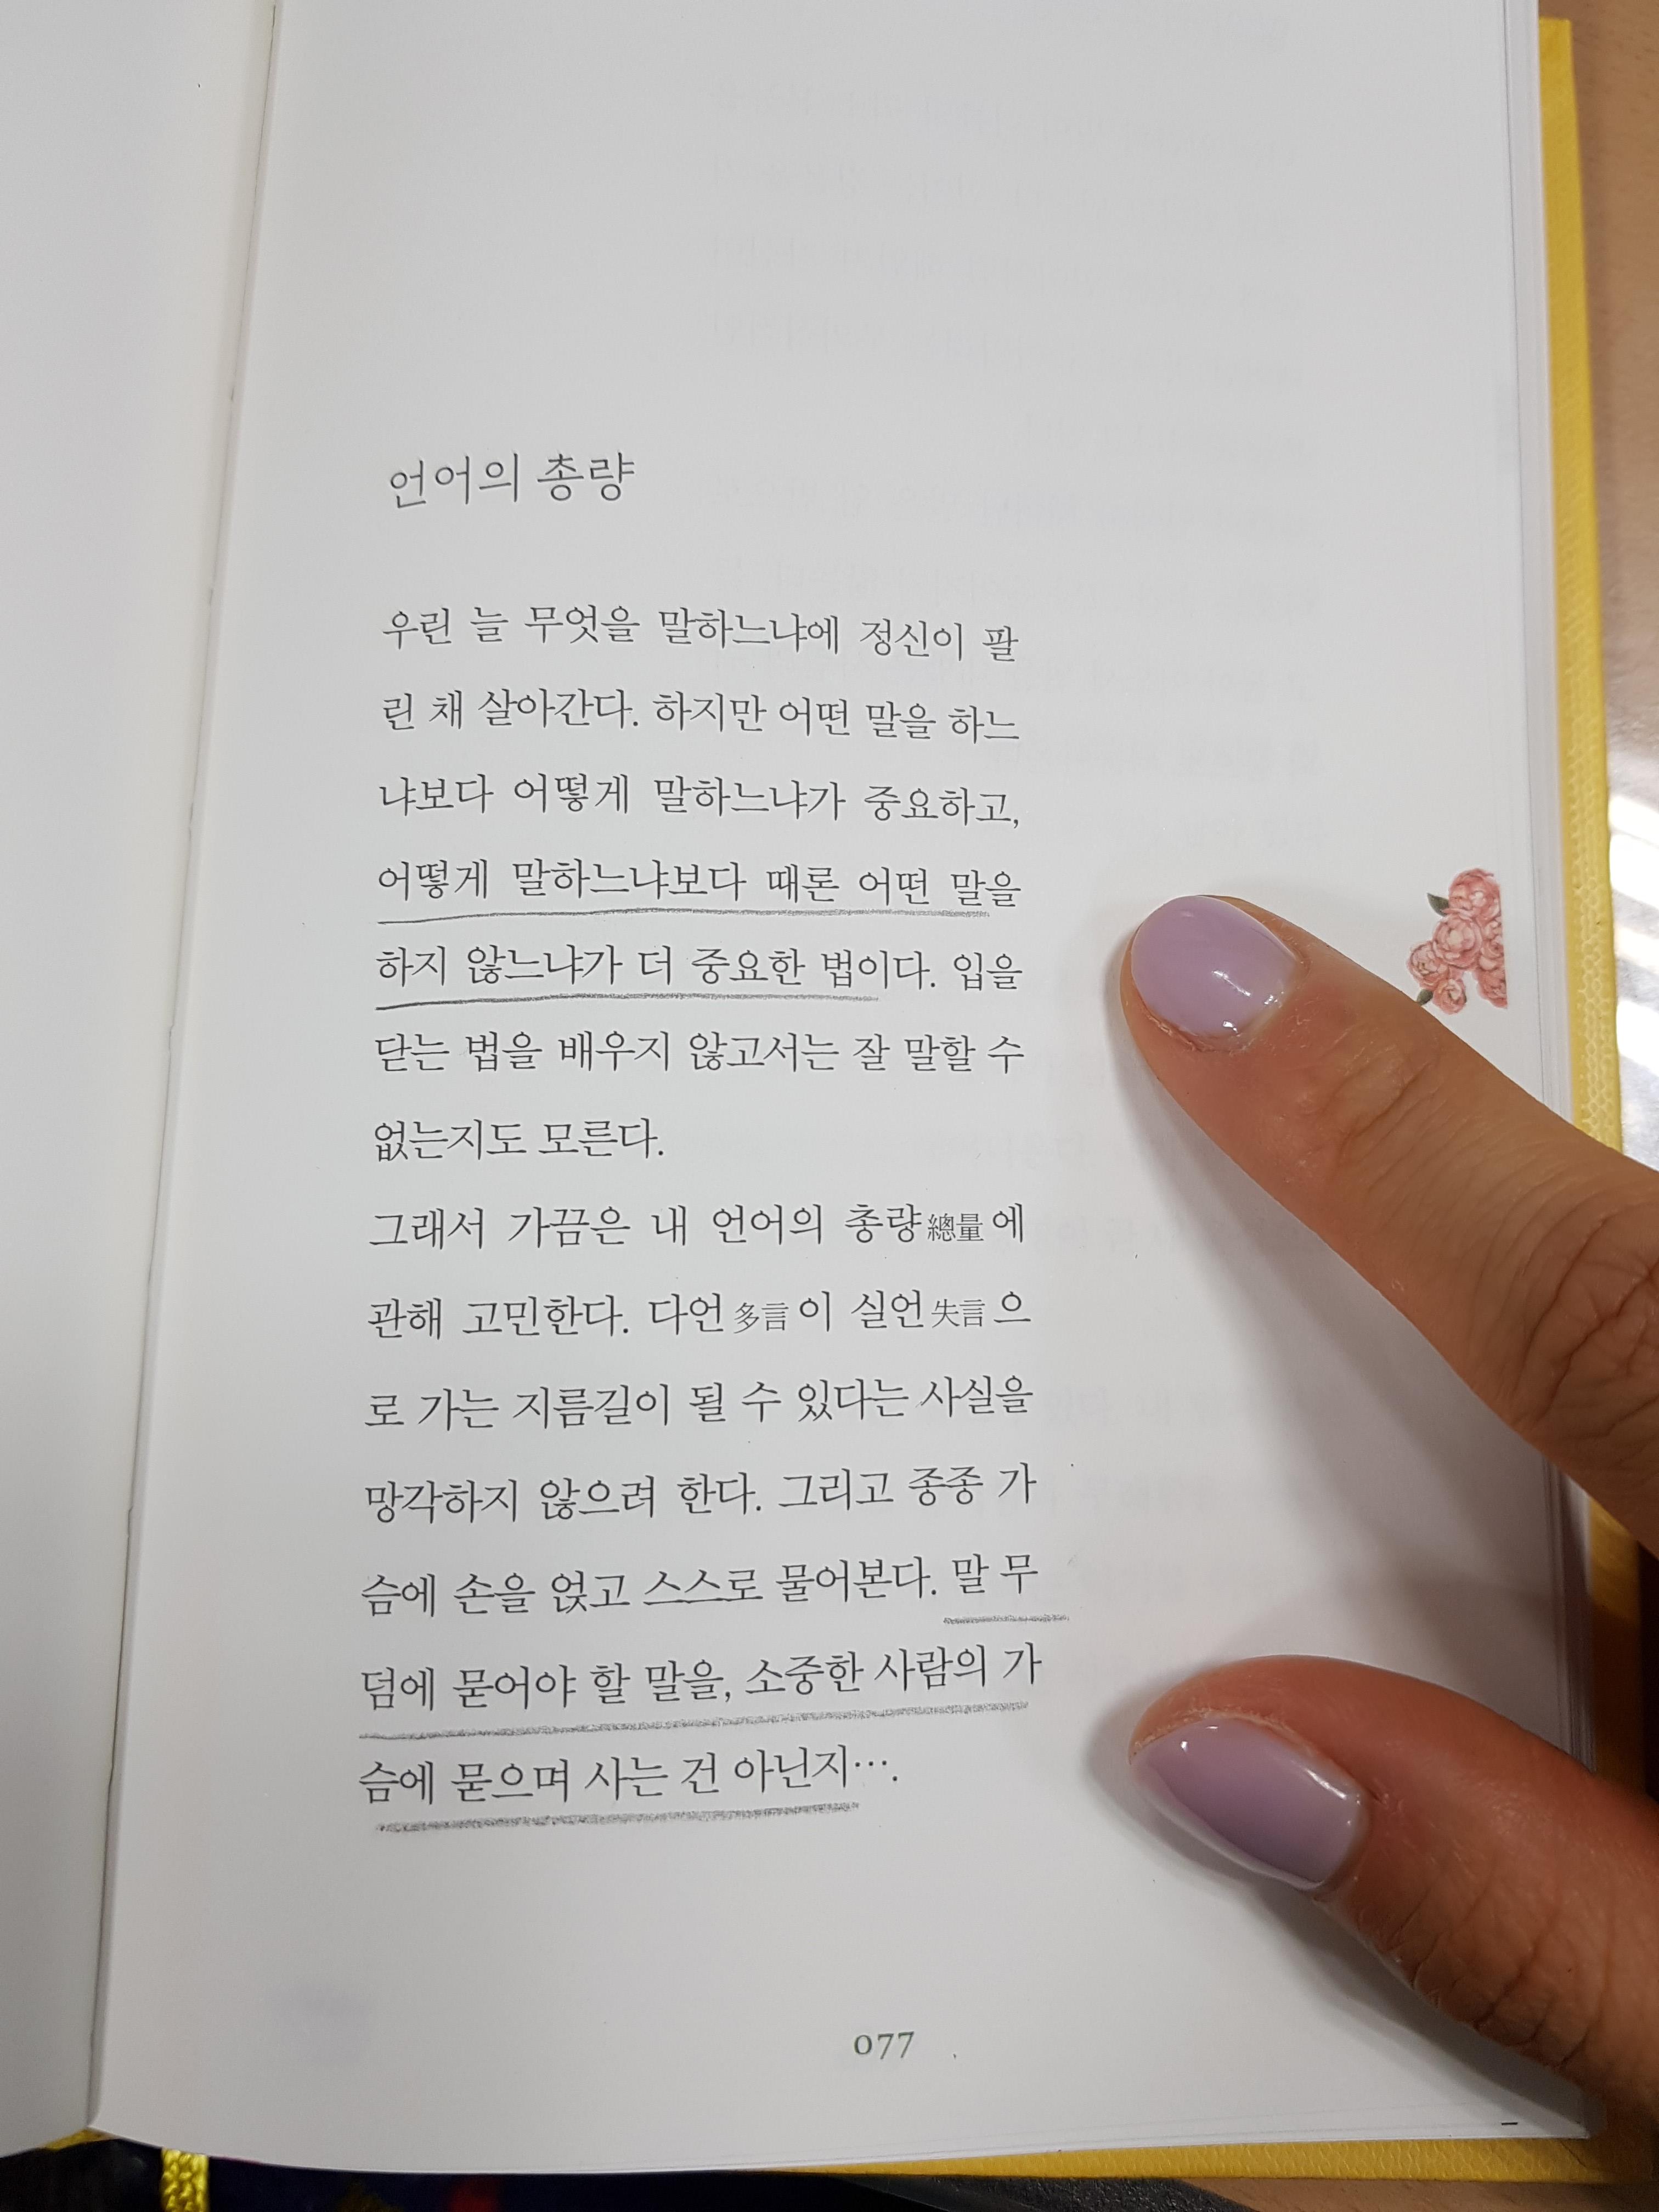 언어의 총량
우린 늘 무엇을 말하느냐에 정신이 팔
린 채 살아간다. 하지만 어떤 말을 하느
냐보다 어떻게 말하느냐가 중요하고,
어떻게 말하느냐보다 때론 어떤 말을
하지 않느냐가 더 중요한 법이다. 입을
닫는 법을 배우지 않고서는 잘 말할 수
없는지도 모른다.
그래서 가끔은 내 언어의 총량總量에
관해 고민한다. 다언多言이 실언失言으
로 가는 지름길이 될 수 있다는 사실을
망각하지 않으려 한다. 그리고 종종 가
슴에 손을 얹고 스스로 물어본다. 말 무
덤에 묻어야 할 말을, 소중한 사람의 가
슴에 묻으며 사는 건 아닌지….
077